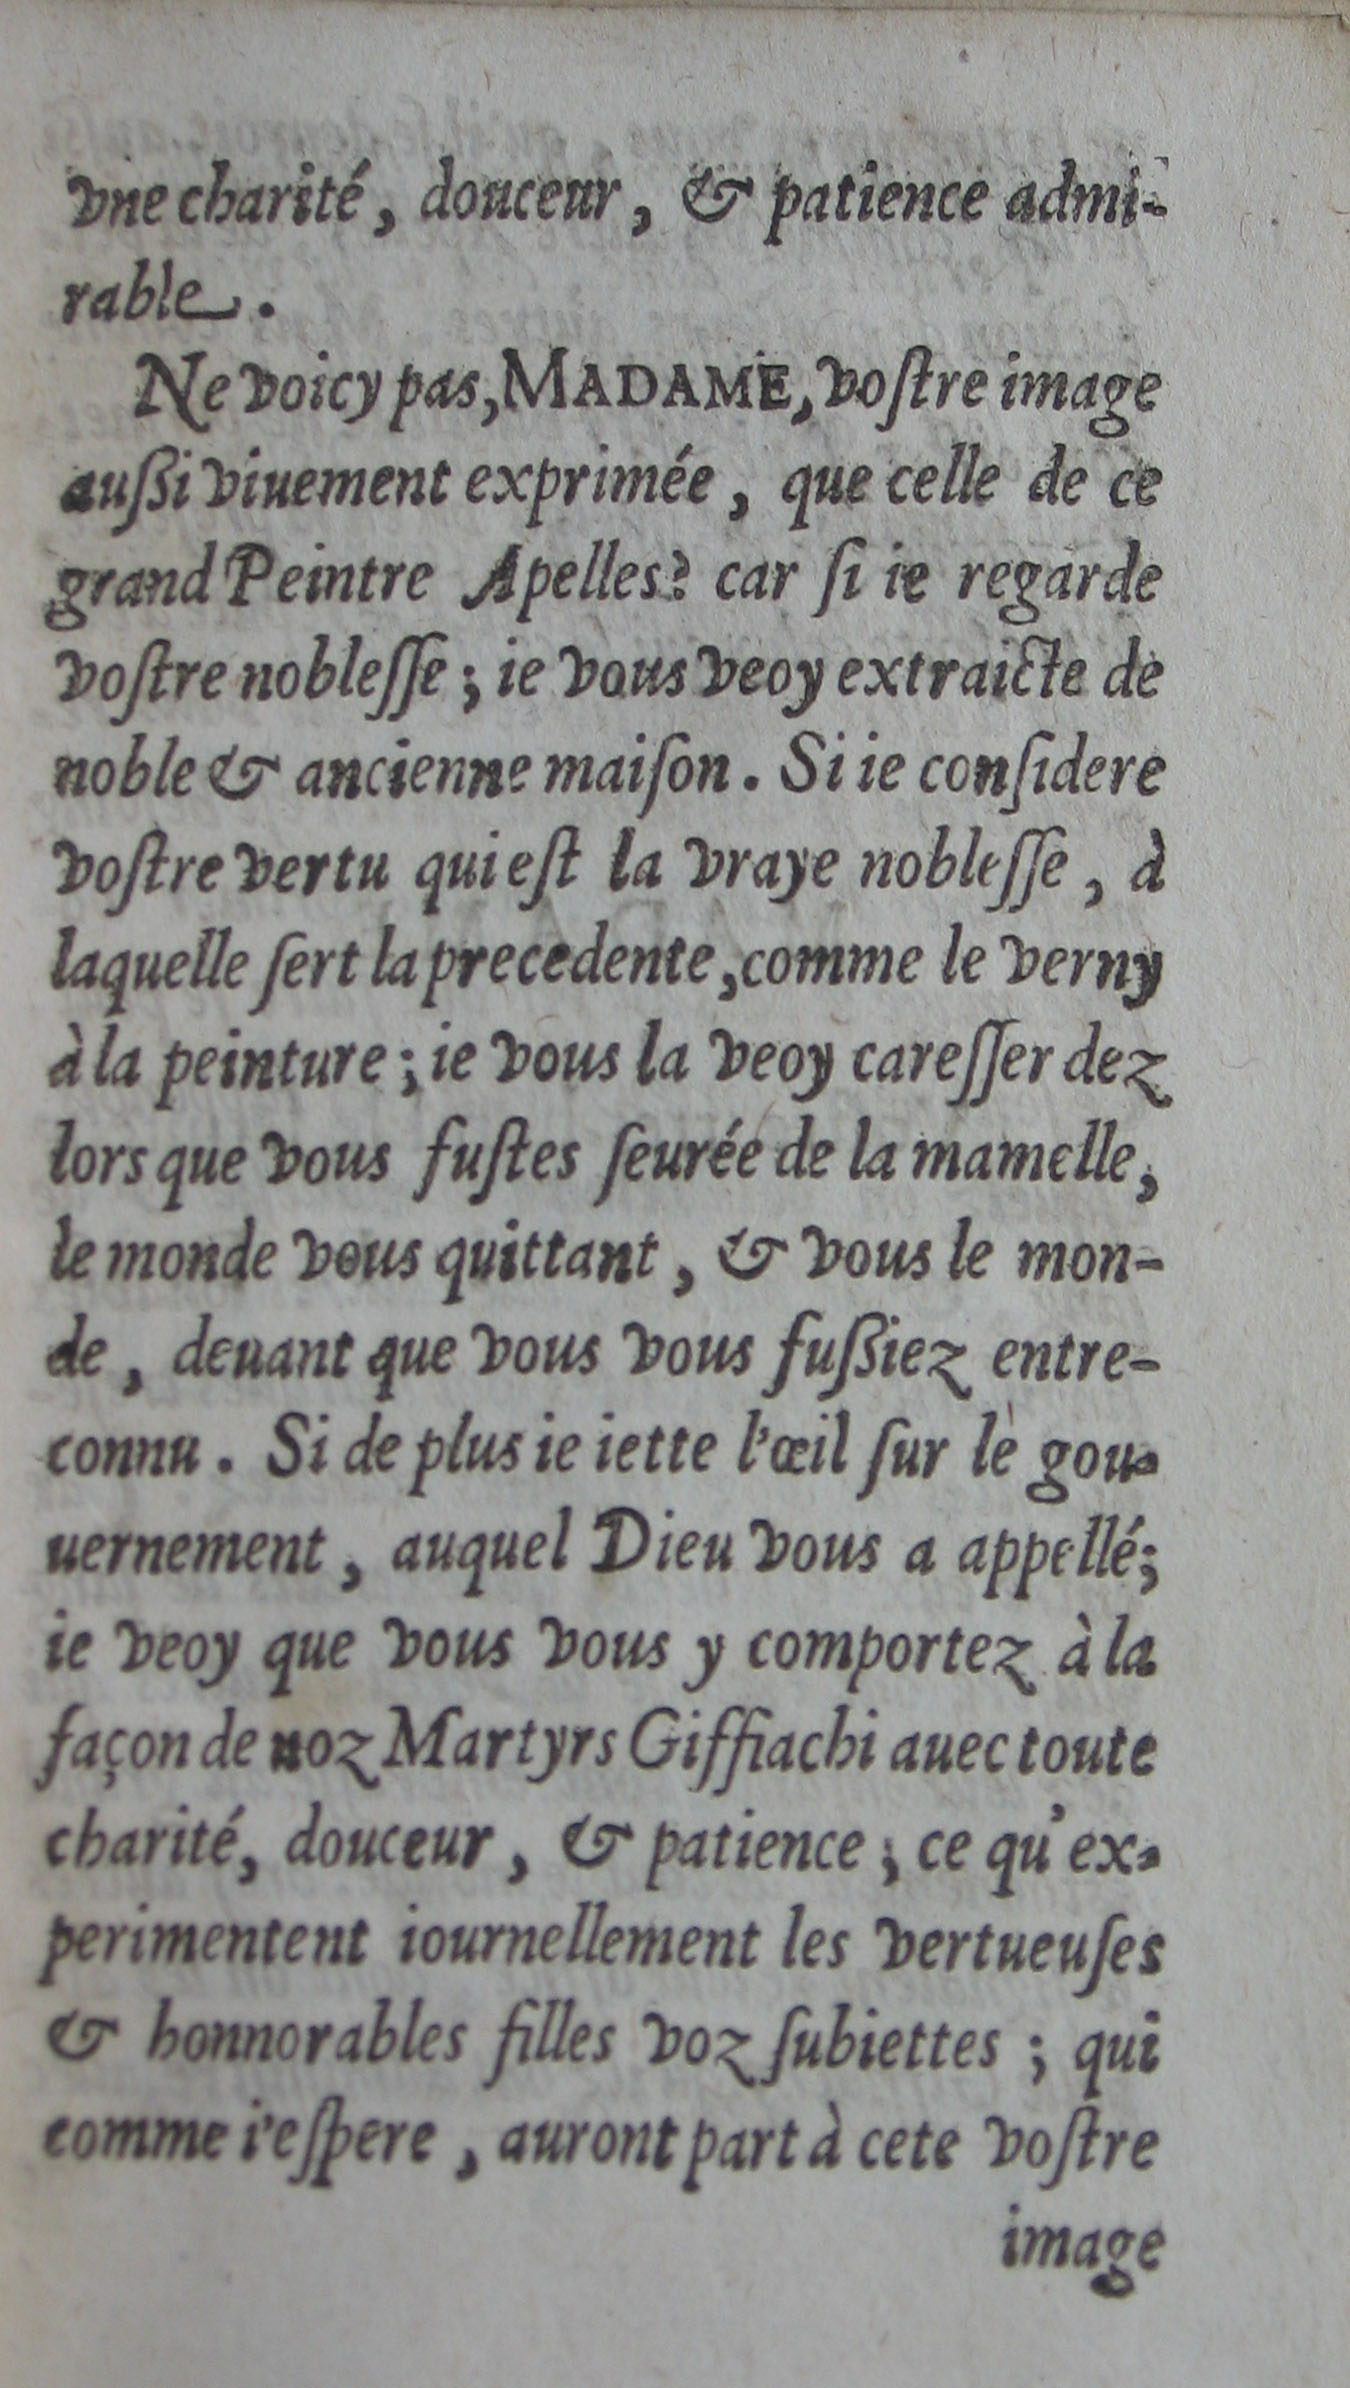 vne charité, douceur, & patience admi-
rable.
Ne voicy pas, MADAME, voſtre image
außi viuement exprimée, que celle de ce
grand Peintre Apelles? car ſi ie regarde
voſtre nobleſſe; ie vous veoy extraicte de
noble & ancienne maiſon. Si ie conſidere
voſtre vertu qui eſt la vraye nobleſſe, à
laquelle ſert la precedente, comme le verny
à la peinture; ie vous la veoy careſſer dez
lors que vous fuſtes ſeurée de la mamelle,
le monde vous quittant, & vous le mon-
de, deuant que vous vous fußiez entre-
connu. Si de plus ie iette l'œil ſur le gou-
uernement, auquel Dieu vous a appellé;
ie veoy que vous vous y comportez à la
façon de noz Martyrs Giffiachi auec toute
charité, douceur, & patience; ce qu'ex-
perimentent iournellement les vertueuſes
& honnorables filles voz ſubiettes; qui
comme i'eſpere, auront part à cete voſtre
image